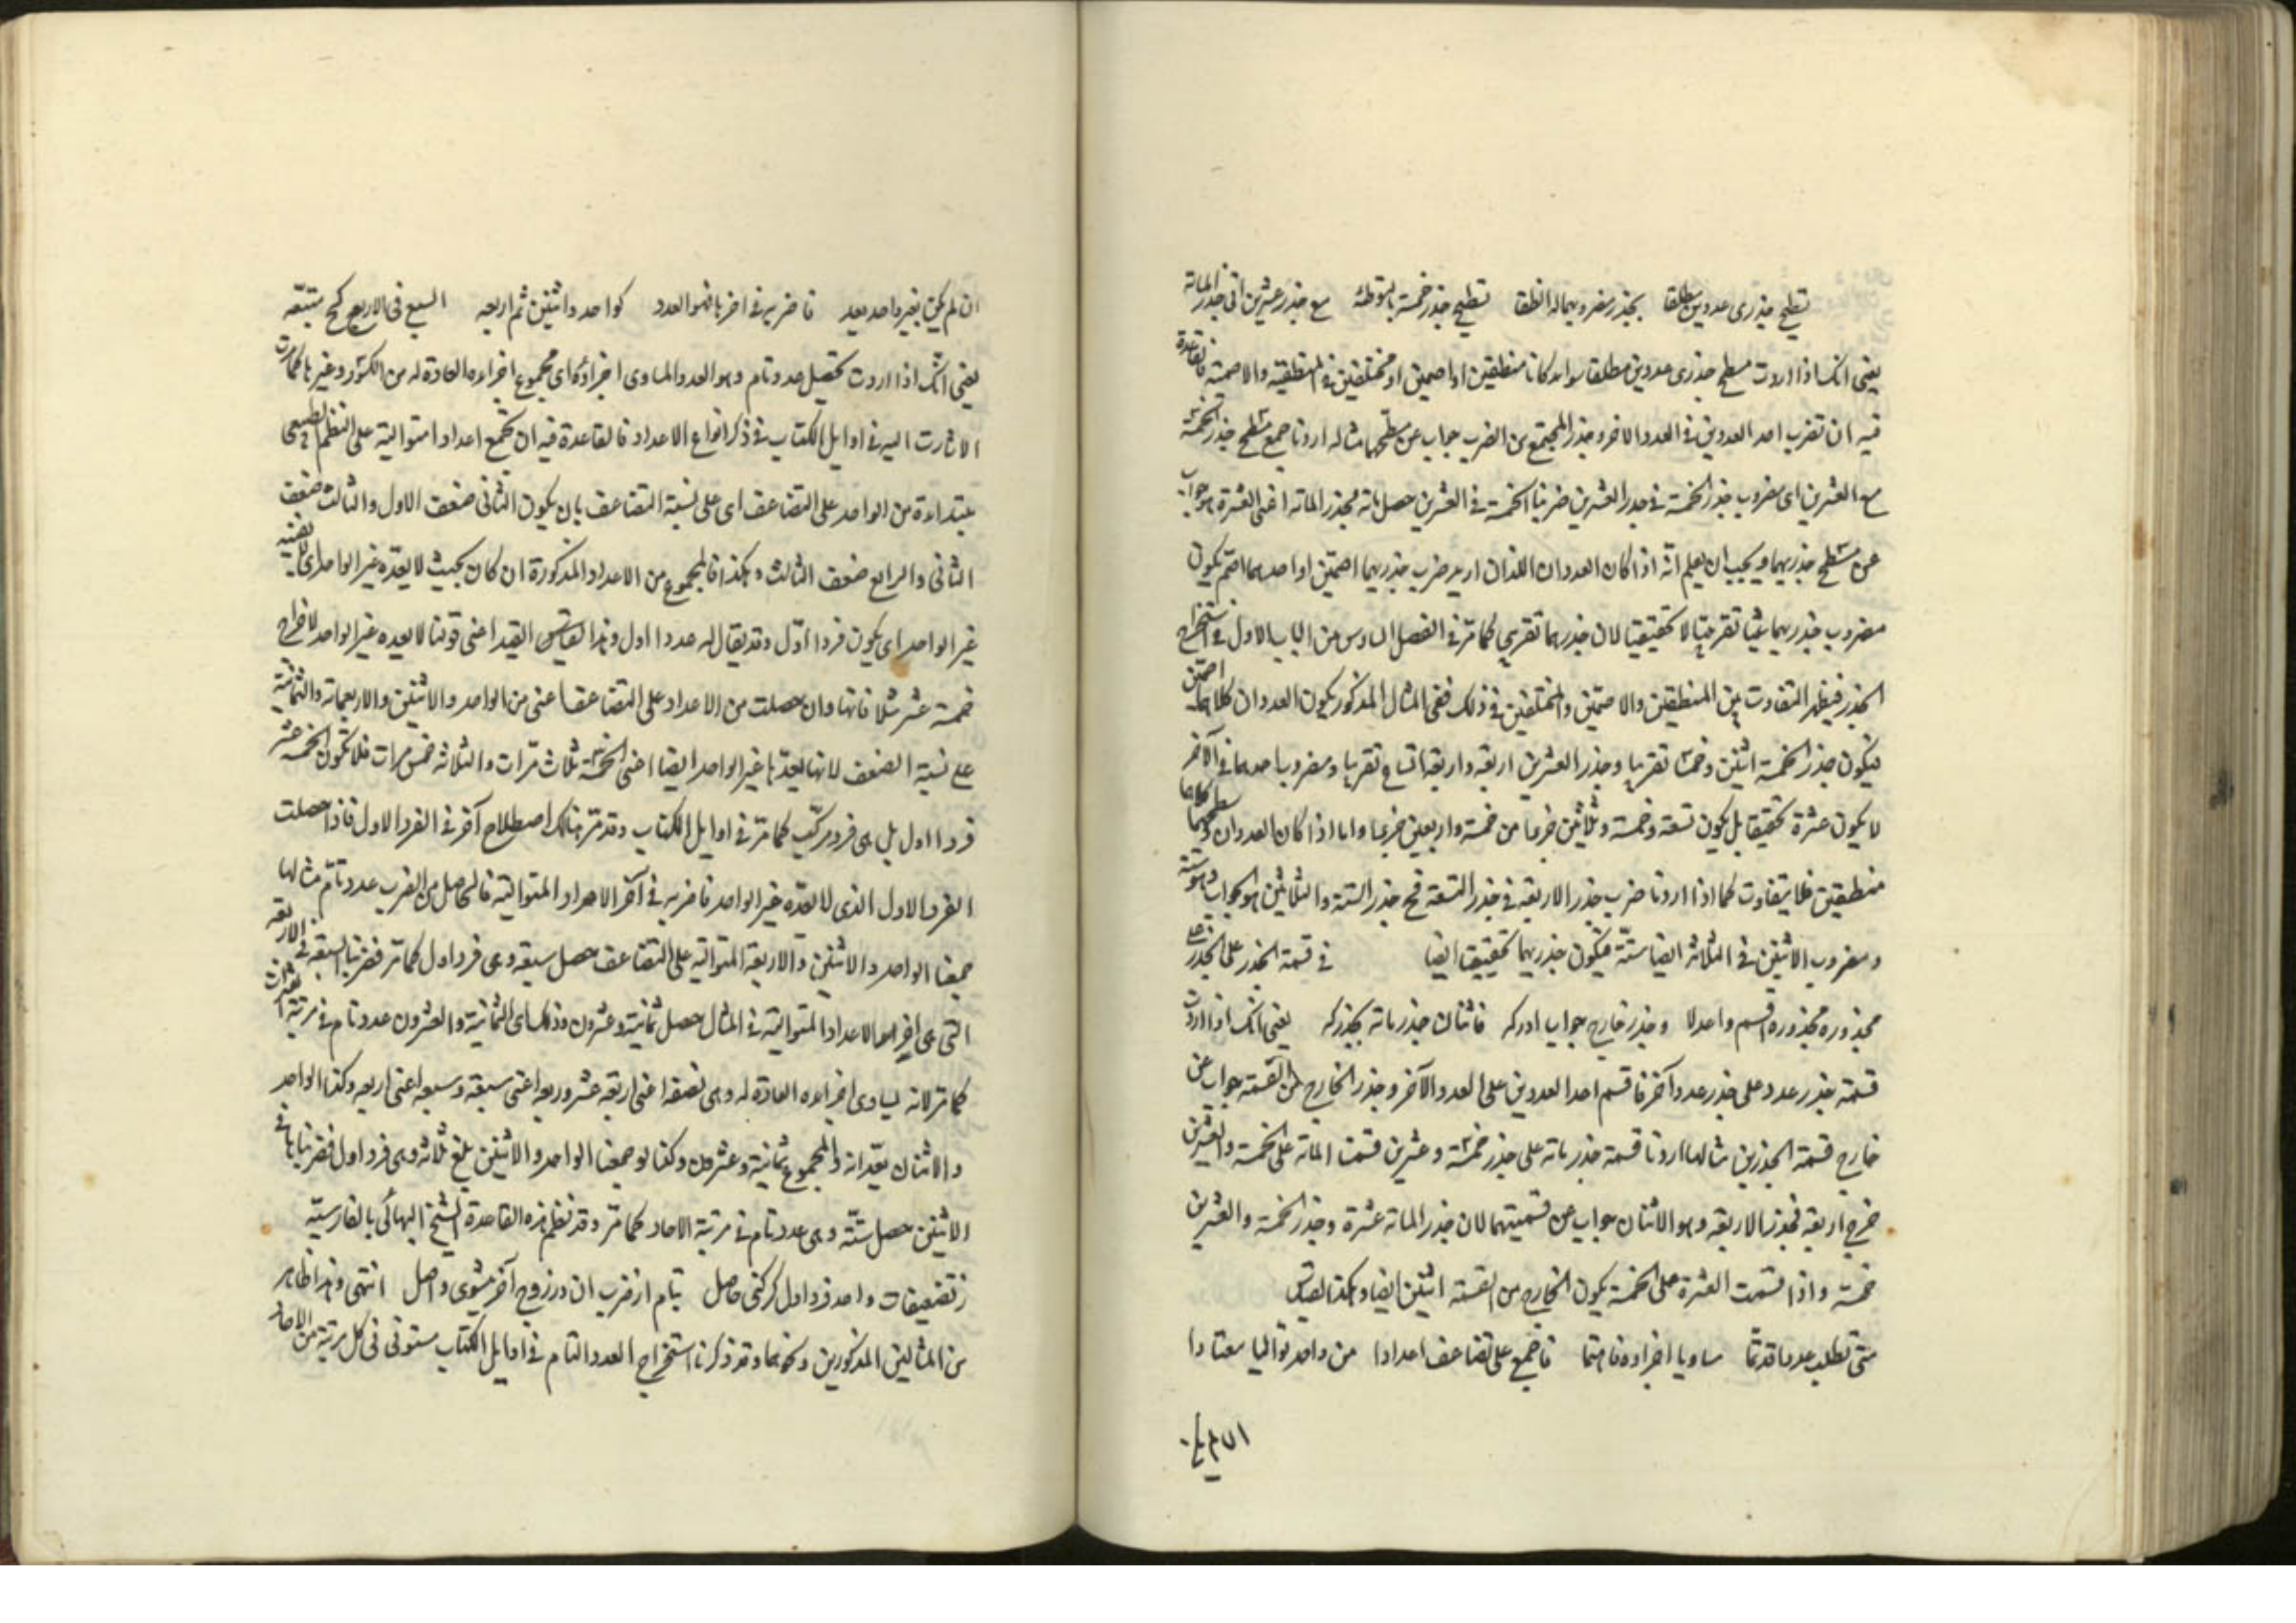 تسطيح جذرى عددين مطلقا بجذر مضروبهما له انطقا تسطيح جذر خمسة بالتوطئه مع جذر عشرين اتى جذر المائة
يعنى انك اذا اردت مسطح جذرى عددين مطلقا سواء كانا منطقين او اصمين او مختلفين فى المنطقية والاصمية فالقاعدة
فيه ان تضرب احد العددين فى العدد الاخر وجذر المجتمع من الضرب جواب عن مسطحهما مثاله اردنا جمع مسطح جذر الخمسة
مع العشرين اى مضروب جذر الخمسة فى جذر العشرين ضربنا الخمسة فى العشرين حصل مائة فجذر المائة اعنى العشرة هو جواب
عن مسطح جذريهما ويجب ان يعلم انه اذا كان العددان اللذان اريد ضرب جذريهما اصمين او احدهما اصم يكون
مضروب جذريهما شيئا تقريبيا لا تحقيقيا لان جذرهما تقريبى كما مر فى الفصل السادس من الباب الاول فى استخراج
الجذر فيظهر التفاوت بين المنطقين والاصمين والمختلفين فى ذلك ففى المثال المذكور يكون العددان كلاهما اصمين
فيكون جذر الخمسة اثنين وخمسا تقريبا وجذر العشرين اربعة واربعة اتساع تقريبا ومضروب احدهما فى الآخر
لا يكون عشرة تحقيقا بل يكون تسعة وخمسة وثلاثين جزءا من خمسة واربعين جزءا واما اذا كان العددان كلاهما
منطقين فلا يتفاوت كما اذا اردنا ضرب جذر الاربعة فى جذر التسعة فجذر الستة والثلاثين هو الجواب وهو ستة
ومضروب الاثنين فى الثلاثة ايضا ستة فيكون جذريهما تحقيقيا ايضا فى قسمة الجذر على الجذر
مجذوره مجذوره اقسم واحدلا وجذر خارج جواب ادركه فاثنان جذر مائة بجذركه يعنى انك اذا اردت
قسمة جذر عدد على جذر عدد آخر فاقسم احد العددين على العدد الآخر وجذر الخارج من القسمة جواب عن
خارج قسمة الجذرين مثالها اردنا قسمة جذر مائة على جذر خمسة وعشرين قسمنا المائة على الخمسة والعشرين
خرج اربعة فجذر الاربعة وهو الاثنان جواب عن قسميتهما لان جذر المائة عشرة وجذر الخمسة والعشرين
خمسة واذا قسمت العشرة على الخمسة يكون الخارج من القسمة اثنين ايضا وهكذا القياس
متى تطلب عددا قد تما مساويا اجزاءه فاهتما فاجمع على تضاعف اعدادا من واحد تواليا معتادا
ان لم يكن بغير واحد يعد فاضربه فى اخرها فهو العدد كواحد واثنين ثم اربعه السبع فى الاربع كح متبعه
يعنى انك اذا اردت تحصيل عدد تام وهو العدد المساوى اجزاؤه اى مجموع اجزاءه العادة له من الكسور وغيرها كما مرت
الاشارت اليه فى اوايل الكتاب فى ذكر انواع الاعداد فالقاعدة فيه ان تجمع اعدادا متوالية على النظم الطبيعى
مبتداءة من الواحد على التضاعف اى على نسبة التضاعف بان يكون الثانى ضعف الاول والثالث ضعف
الثانى والرابع ضعف الثالث وهكذا فالمجموع من الاعداد المذكورة ان كان بحيث لا يعده غير الواحد اى
غير الواحد اى يكون فردا اول وقد يقال له عددا اول وهذا القيد اعنى قولنا لا يعده غير الواحد لاخراج
خمسة عشر مثلا فانها وان حصلت من الاعداد على التضاعف اعنى من الواحد والاثنين والاربعة والثمانية
على نسبة الضعف لانها يعدها غير الواحد ايضا اعنى الخمسة ثلاث مرات والثلاثة خمس مرات فلا تكون الخمسة عشر
فردا اول بل هى فرد مركب كما مر فى اوايل الكتاب وقد مر هناك اصطلاح آخر فى الفرد الاول فاذا حصلت
الفرد الاول الذى لا يعده غير الواحد فاضربه فى آخر الاعداد المتوالية فالحاصل من الضرب عدد تام مثالها
جمعنا الواحد والاثنين والاربعة المتوالية على التضاعف حصل سبعة وهى فرد اول كما مر فضربنا السبعة فى الاربعة
التى هى اخر الاعداد المتوالية فى المثال حصل ثمانية وعشرون وذلك اى الثمانية والعشرون عدد تام فى مرتبة العشرات
كما مر لانه يساوى اجزاءه العادة له وهى نصفه اعنى اربعة عشر وربعه اعنى سبعة وسبعه اعنى اربعه وكذا الواحد
والاثنان يعدانه والمجموع ثمانية وعشرون وكذا لو جمعنا الواحد والاثنين بلغ ثلاثة وهى فرد اول فضربناها فى
الاثنين حصل ستة وهى عدد تام فى مرتبة الاحاد كما مر وقد نظم هذه القاعدة الشيخ البهائى بالفارسية
ز تضعيفات واحد فرد اول گر كنى حاصل تام از ضرب ان در زوج آخر ميشوى واصل انتهى وهذا ظاهر
من المثالين المذكورين ونحوهما وقد ذكرنا استخراج العدد التام فى اوايل الكتاب مستوفى فى كل مرتبة من الاحاد